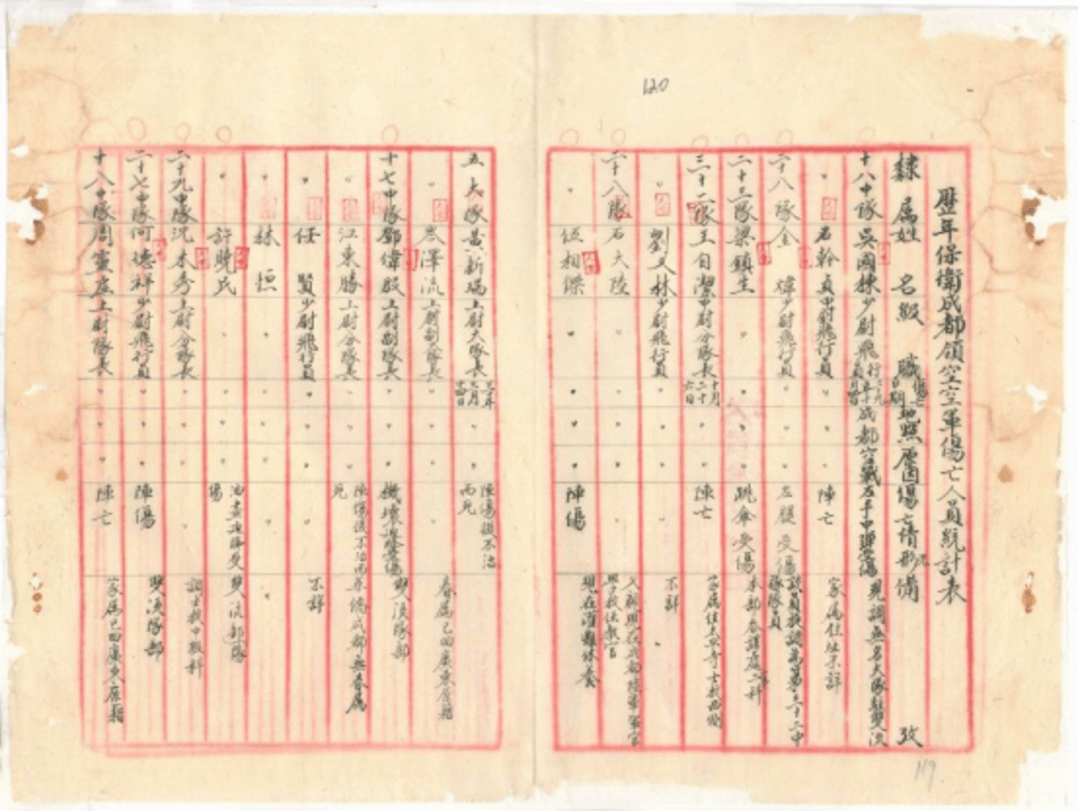 120
歷年保衛成都領空空軍傷亡人員統計表
隸屬 姓名 級職 傷亡日期 地點 原因 傷亡情形 備攷
十八中隊 吳國棟 少尉飛行員 成都 空戰 左手中彈受傷 現調無名大隊駐雙流
〃 石幹貞 中尉飛行員 〃 〃 〃 陣亡 家屬住址不詳
二十八隊 金煒 少尉飛行員 〃 〃 〃 左腿受傷
二十三隊 梁鎮生 〃 〃 〃 〃 跳傘受傷 本部
三十二隊 王自潔 中尉分隊長 十月二十六日 〃 〃 陣亡 家屬住
〃 劉文林 少尉飛行員 〃 〃 〃 〃 不詳
二十八隊 石大陸 〃 〃 〃 〃 〃
〃 伍相傑 〃 〃 〃 〃 陣傷 現在灌縣休養
五大隊 黃新瑞 上尉大隊長 〃 〃 陣傷後不治而死
〃 岑澤鎏 上尉副隊長 〃 〃 〃 〃 眷屬已回廣東原籍
十七中隊 鄧偉殷 上尉副隊長 〃 〃 〃 機壞 雙流隊部
〃 江東勝 上尉分隊長 〃 〃 〃 陣傷後不治而死 成都無眷屬
〃 任賢 少尉飛行員 〃 〃 〃 〃 不詳
〃 林恒 〃 〃 〃 〃 〃 〃
〃 許曉民 〃 〃 〃 〃 傷 雙流部隊
二十九中隊 沈木秀 上尉分隊長 〃 〃 〃 〃 調士校中教科
二十七中隊 何德祥 少尉飛行員 〃 〃 〃 陣傷 雙流隊部
十八中隊 周靈虛 上尉隊長 〃 〃 〃 陣亡 家屬已回廣東原籍
119